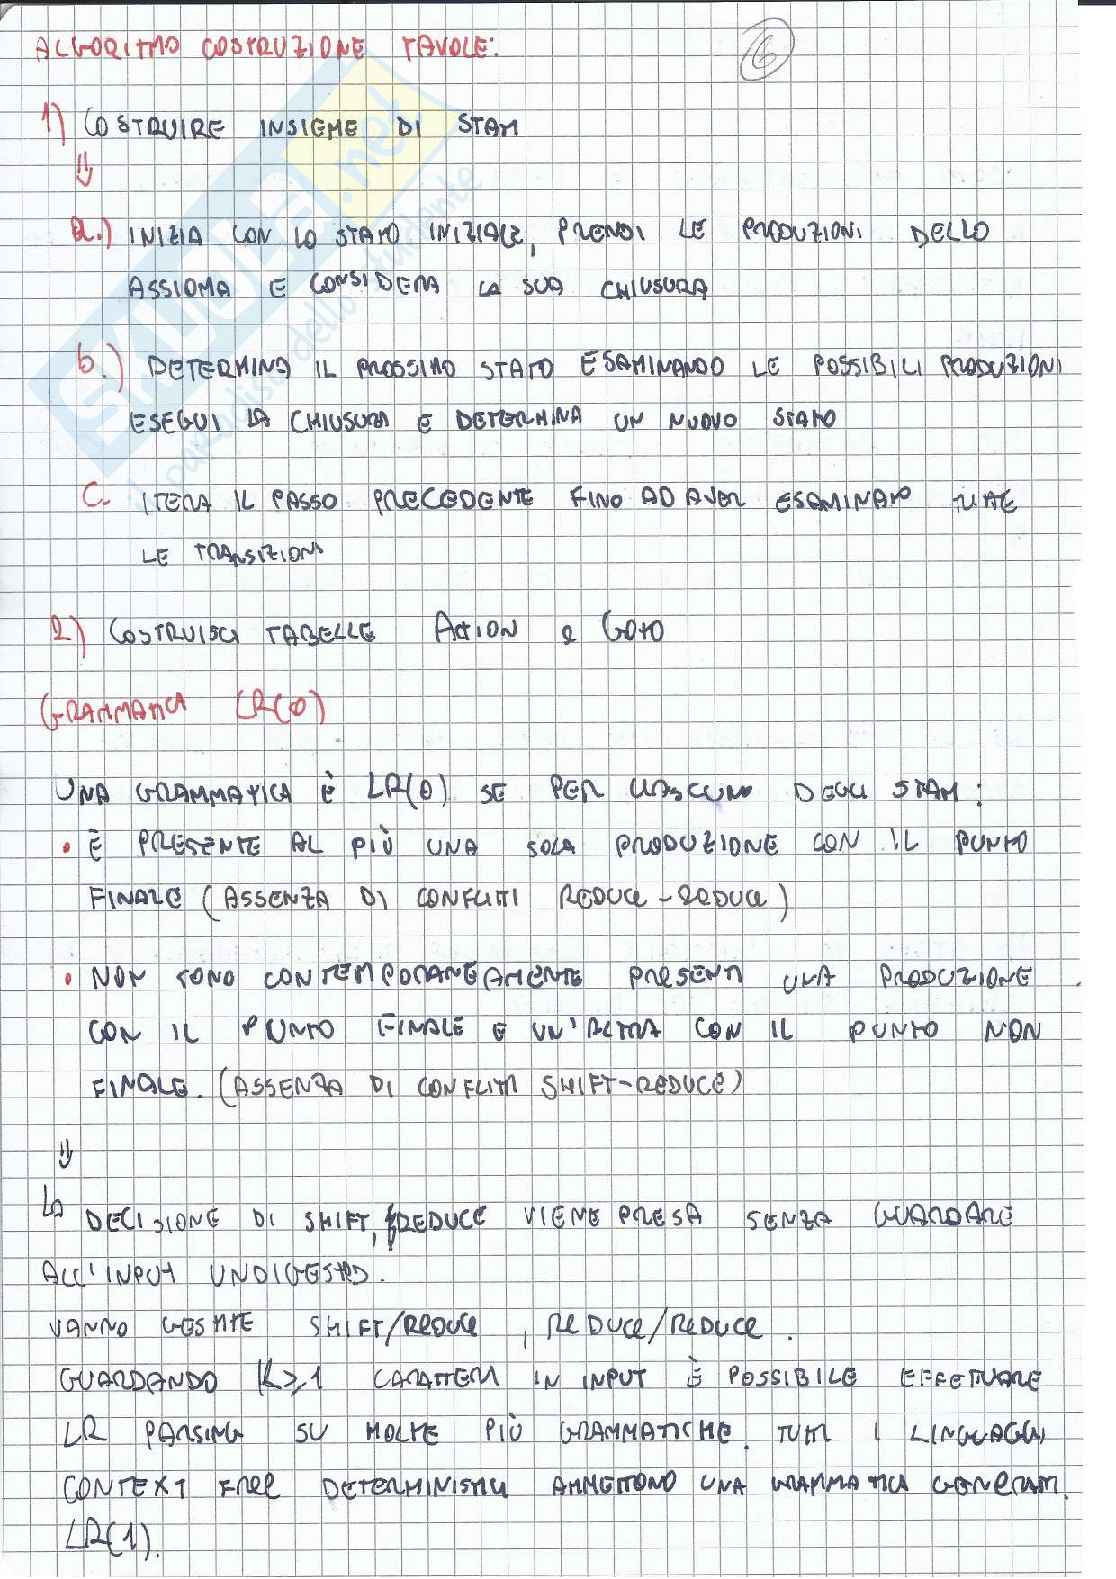 ALGORITMO COSTRUZIONE TAVOLE:
6
1) COSTRUIRE INSIEME DI STATI
⇓
a.) INIZIA CON LO STATO INIZIALE, PRENDI LE PRODUZIONI DELLO
ASSIOMA E CONSIDERA LA SUA CHIUSURA
b.) DETERMINA IL PROSSIMO STATO ESAMINANDO LE POSSIBILI PRODUZIONI
ESEGUI LA CHIUSURA E DETERMINA UN NUOVO STATO
C. ITERA IL PASSO PRECEDENTE FINO AD AVER ESAMINATO TUTTE
LE TRANSIZIONI
2) COSTRUISCI TABELLE ACTION e GOTO
GRAMMATICA LR(0)
UNA GRAMMATICA È LR(0) SE PER CIASCUNO DEGLI STATI:
• È PRESENTE AL PIÙ UNA SOLA PRODUZIONE CON IL PUNTO
FINALE (ASSENZA DI CONFLITTI REDUCE-REDUCE)
• NON SONO CONTEMPORANEAMENTE PRESENTI UNA PRODUZIONE
CON IL PUNTO FINALE E UN'ALTRA CON IL PUNTO NON
FINALE. (ASSENZA DI CONFLITTI SHIFT-REDUCE)
⇓
LA DECISIONE DI SHIFT, REDUCE VIENE PRESA SENZA GUARDARE
ALL'INPUT UNDIGESTED.
VANNO GESTITE SHIFT/REDUCE, REDUCE/REDUCE.
GUARDANDO K≥1 CARATTERI IN INPUT È POSSIBILE EFFETTUARE
LR PARSING SU MOLTE PIÙ GRAMMATICHE. TUTTI I LINGUAGGI
CONTEXT FREE DETERMINISTICI AMMETTONO UNA GRAMMATICA GENERAT.
LR(1).